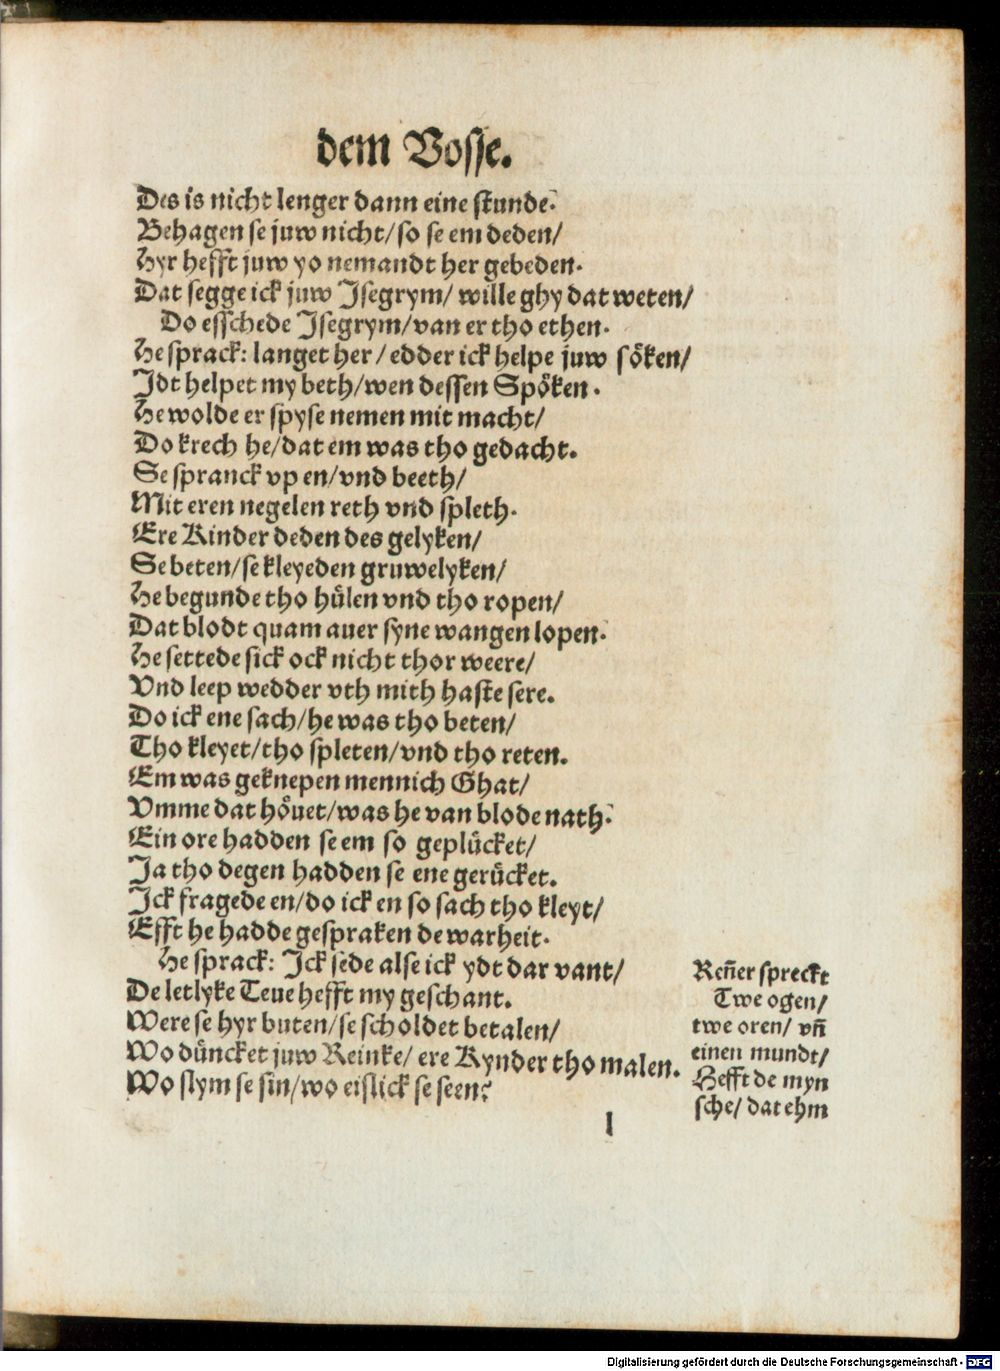 dem Vosse.
Des is nicht lenger dann eine stunde.
Behagen se juw nicht/ so se em deden/
Hyr hefft juw yo nemandt her gebeden.
Dat segge ick juw Jsegrym/ wille ghy dat weten/
Do esschede Jsegrym/ van er tho ethen.
He sprack: langet her / edder ick helpe juw söken/
Jdt helpet my beth/ wen dessen Spöken.
He wolde er spyse nemen mit macht/
Do krech he/ dat em was tho gedacht.
Se spranck vp en/ vnd beeth/
Mit eren negelen reth vnd spleth.
Ere Kinder deden des gelyken/
Se beten/ se kleyeden gruwelyken/
He begunde tho hülen vnd tho ropen/
Dat blodt quam auer syne wangen lopen.
He settede sick ock nicht thor weere/
Vnd leep wedder vth mith haste sere.
Do ick ene sach/ he was tho beten/
Tho kleyet/ tho spleten/ vnd tho reten.
Em was geknepen mennich Ghat/
Vmme dat höuet/ was he van blode nath.
Ein ore hadden se em so geplücket/
Ja tho degen hadden se ene gerücket.
Jck fragede en/ do ick en so sach tho kleyt/
Efft he hadde gespraken de warheit.
He sprack: Jck sede alse ick ydt dar vant/
De letlyke Teue hefft my geschant.
Were se hyr buten/ se scholdet betalen/
Wo düncket juw Reinke/ ere Kynder tho malen.
Wo slym se sin/ wo eislick se seen?
Ren̄er spreckt
Twe ogen/
twe oren/ vn̄
einen mundt/
Hefft de myn
sche/ dat ehm
l
Digitalisierung gefördert durch die Deutsche Forschungsgemeinschaft - DFG